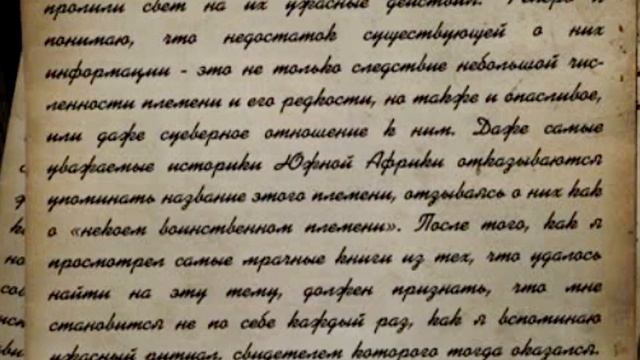 пролили свет на их ужасные действия. Теперь я
понимаю, что недостаток существующей о них
информации - это не только следствие небольшой чис-
ленности племени и его редкости, но также и опасливое,
или даже суеверное отношение к ним. Даже самые
уважаемые историки Южной Африки отказываются
упоминать название этого племени, отзываясь о них как
о «некоем воинственном племени». После того, как я
просмотрел самые мрачные книги из тех, что удалось
найти на эту тему, должен признать, что мне
становится не по себе каждый раз, как я вспоминаю
ужасный ритуал, свидетелем которого тогда оказался.